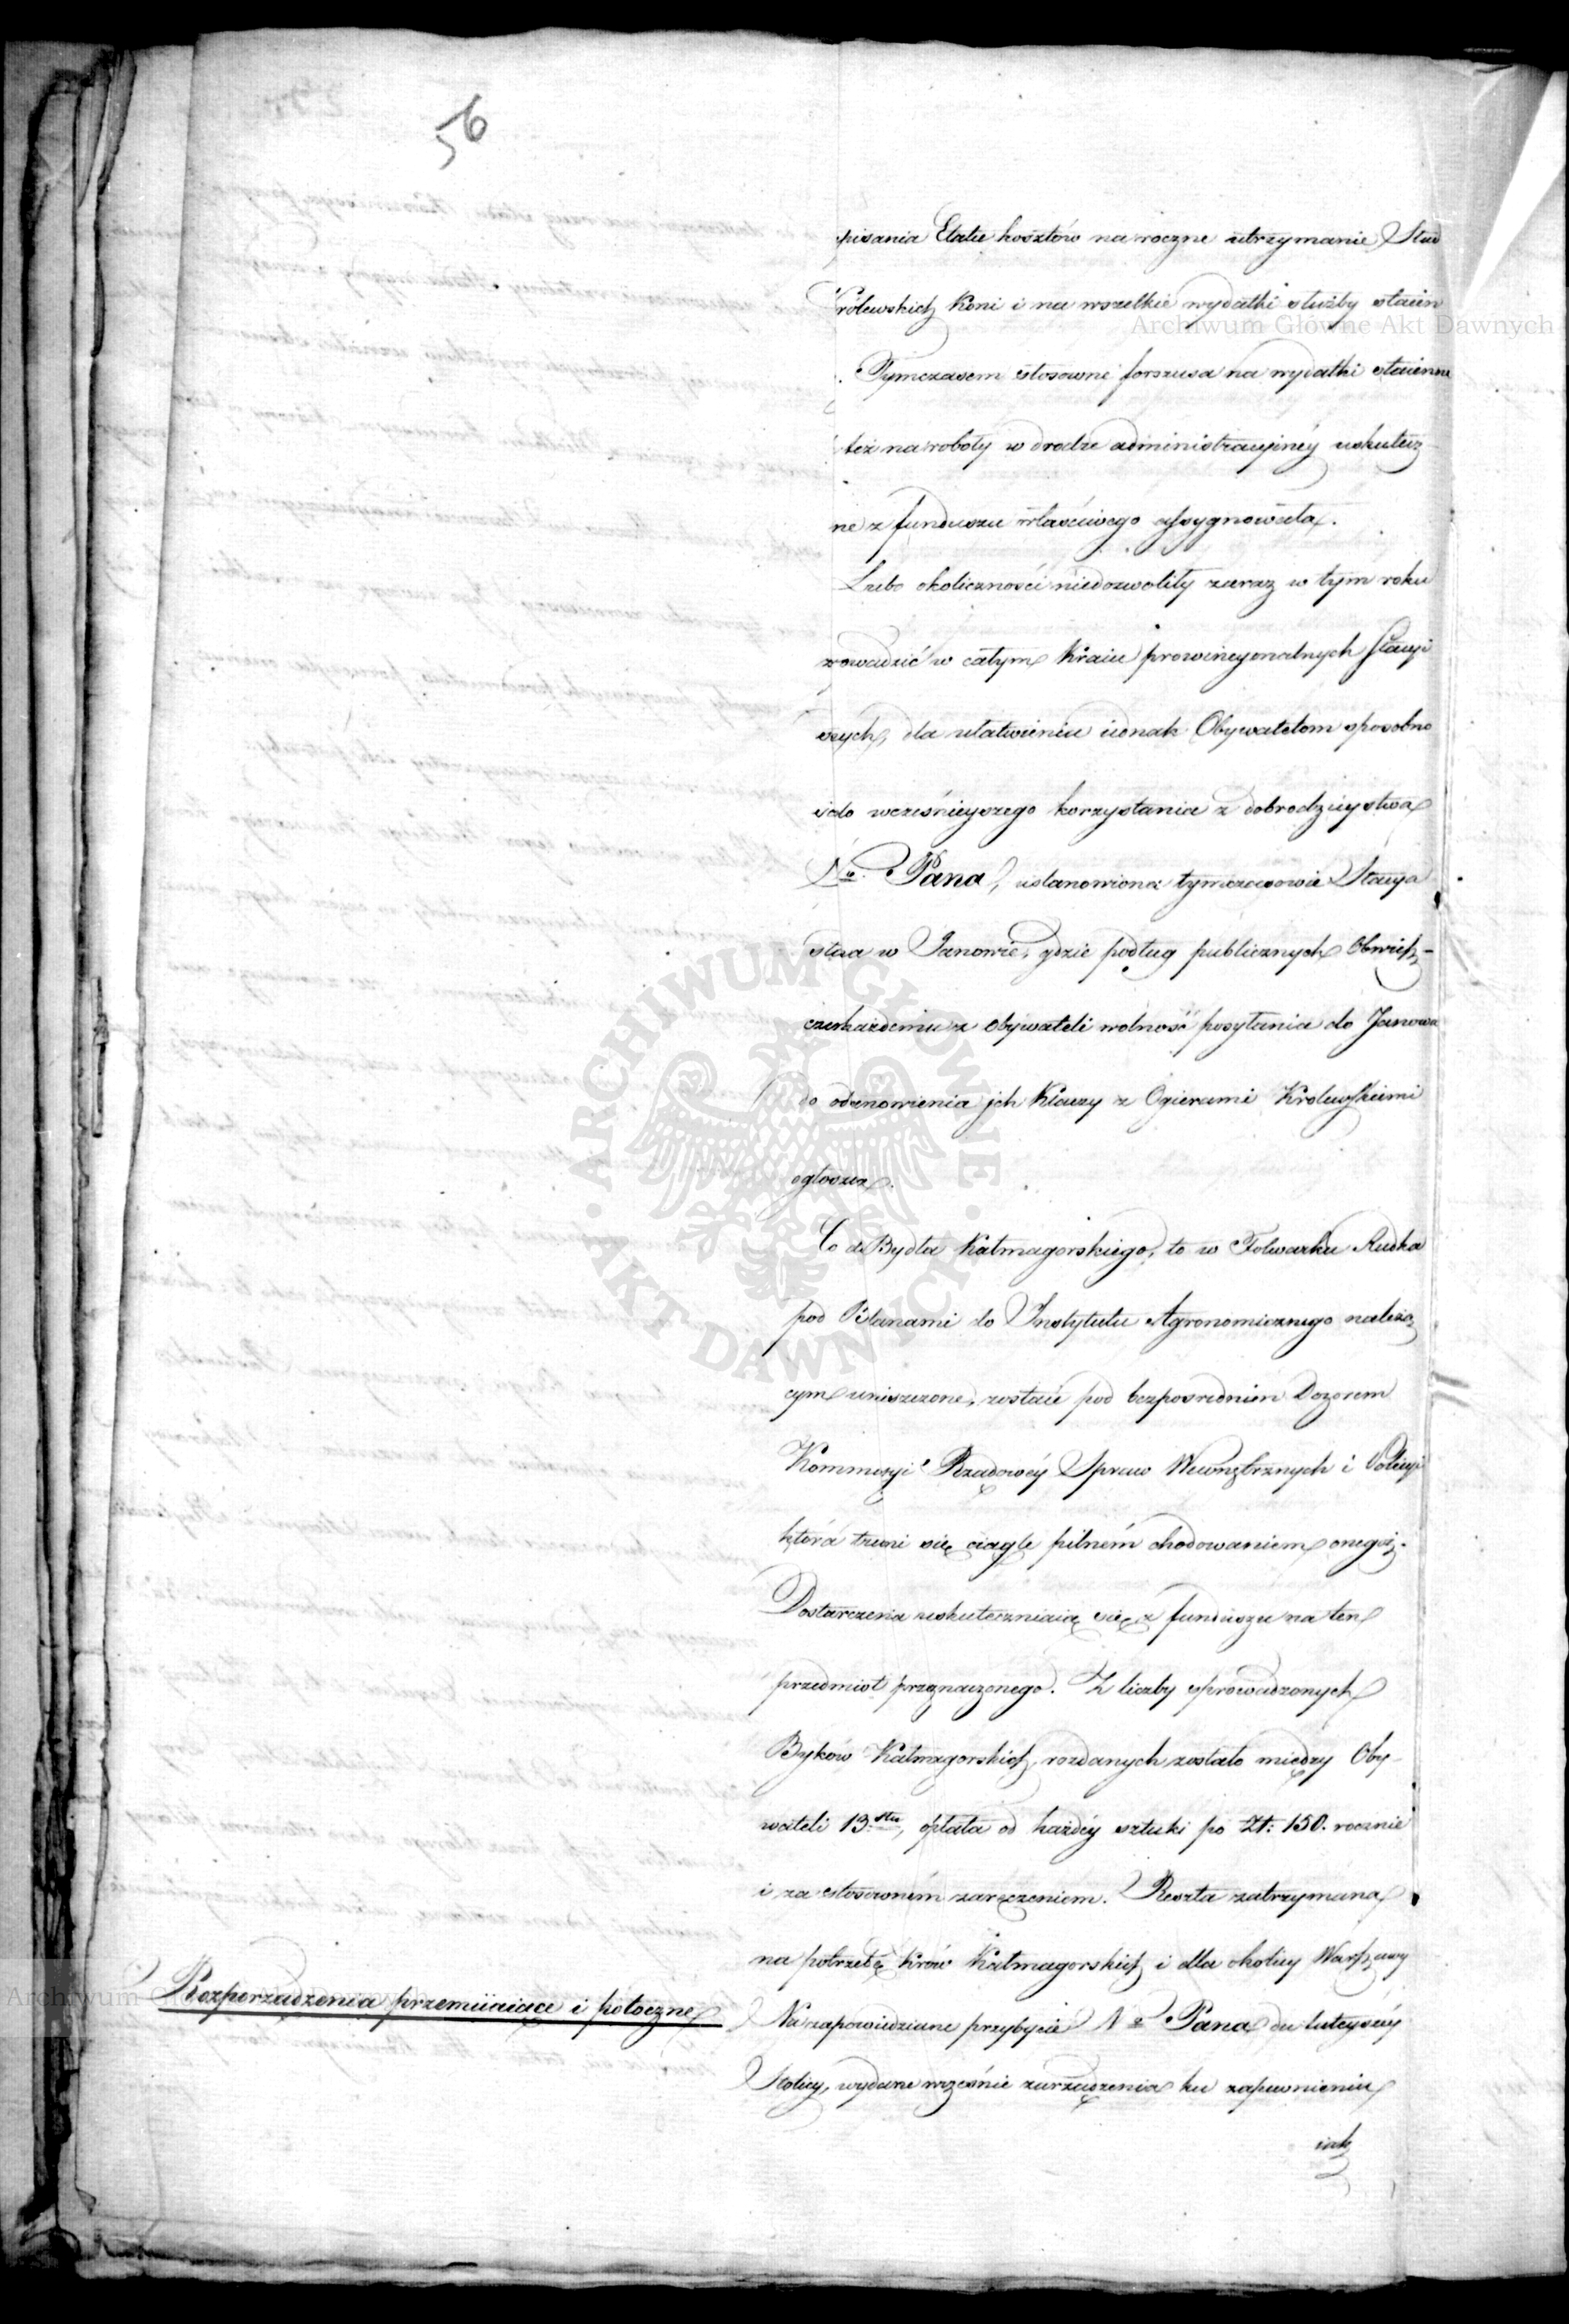 56
pisania Etatu kosztów na roczne utrzymanie Stad
Królewskich Koni i na wszelkie wydatki służby staien
Tymczasem stosowne forszusa na wydatki staienne
też na roboty w drodze administracyinéy uskutecz
ne z funduszu właściwego assygnowała.
Lubo okoliczności niedozwoliły zaraz w tym roku
prowadzić w całym Kraiu prowincyonalnych Stacyi
dla ułatwienia iednak Obywatelom sposobno
i do wcześnieyszego korzystania z dobrodzieystwa
Nº Pana, ustanowiona tymczasowie Stacya
w Janowie, gdzie podług publicznych Obwiesz-
każdemu z Obywateli wolność posyłania do Janowa
do odstanowienia ich Klaczy z Ogierami Krolewskiemi
Co do Bydła Kałmagorskiego, to w Folwarku Rudka
pod Bielanami do Instytutu Agronomicznego należą
cym umieszczone, zostaie pod bezpośrednim Dozorem
Kommissyi Rządowéy Spraw Wewnętrznych i Policyi
która trudni się ciągle pilném chodowaniem onegoż.
Dostarczenia uskuteczniaią się z funduszu na ten
przedmiot przeznaczonego. Z liczby sprowadzonych
Byków Kałmagorskich, rozdanych zostało między Oby-
wateli 13.stu, opłata od każdéy sztuki po Zł: 150. rocznie
i za stosowném zaręczeniem. Reszta zatrzymana
na potrzebę Krów Kałmagorskich i dla okolicy Warszawy
Rozporządzenia przemiiaiące i potoczne
Na zapowiedziane przybycie Nº Pana do tuteyszéy
Stolicy, wydane wcześnie zarządzenia ku zapewnieniu
iak
Archiwum Główne Akt Dawnych
ARCHIWUM GŁÓWNE AKT DAWNYCH